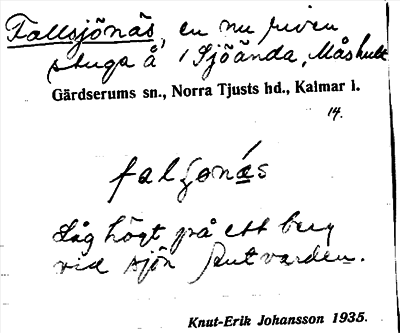 Fallsjönäs, en nu riven
stuga å 1 Sjöända, Måshult
Gärdserums sn., Norra Tjusts hd., Kalmar l.
14.
falʃonäs
Låg högt på ett berg
vid sjön
Knut-Erik Johansson 1935.